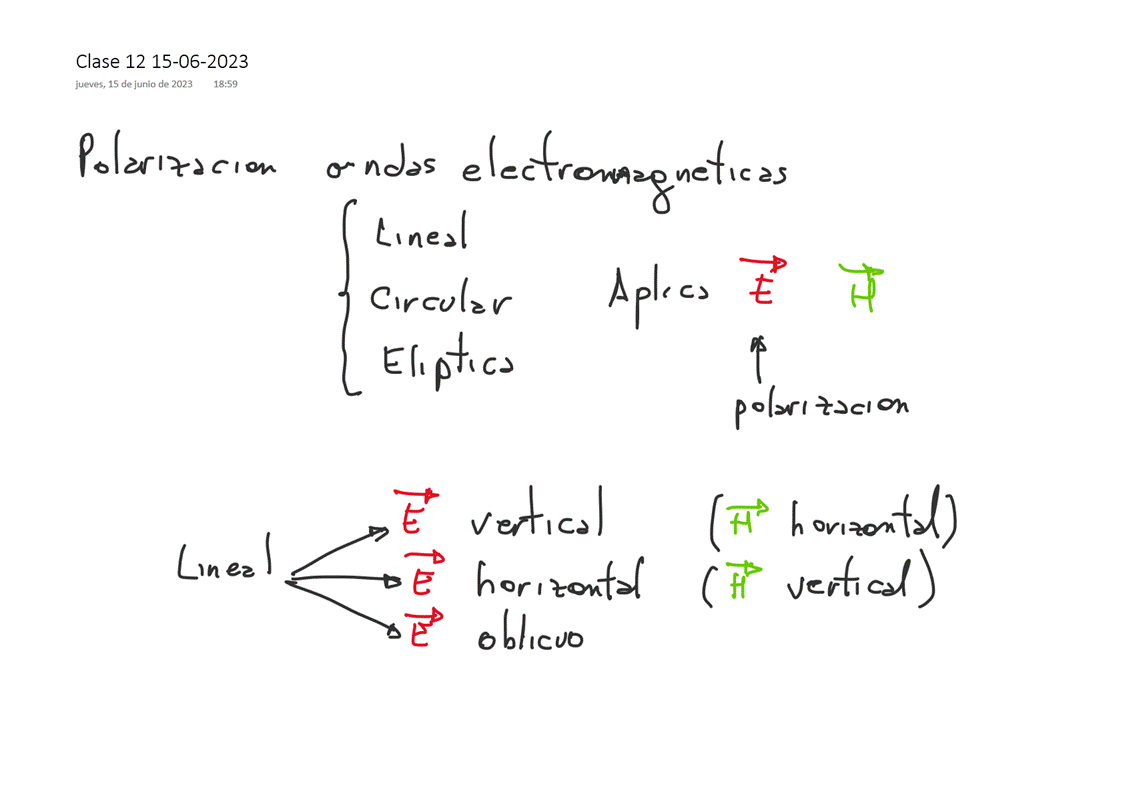 Clase 12 15-06-2023
jueves, 15 de junio de 2023 18:59
Polarizacion ondas electromagneticas
Lineal
Circular
Eliptica
Aplica E H
polarizacion
Lineal
E vertical (H horizontal)
E horizontal (H vertical)
E oblicuo